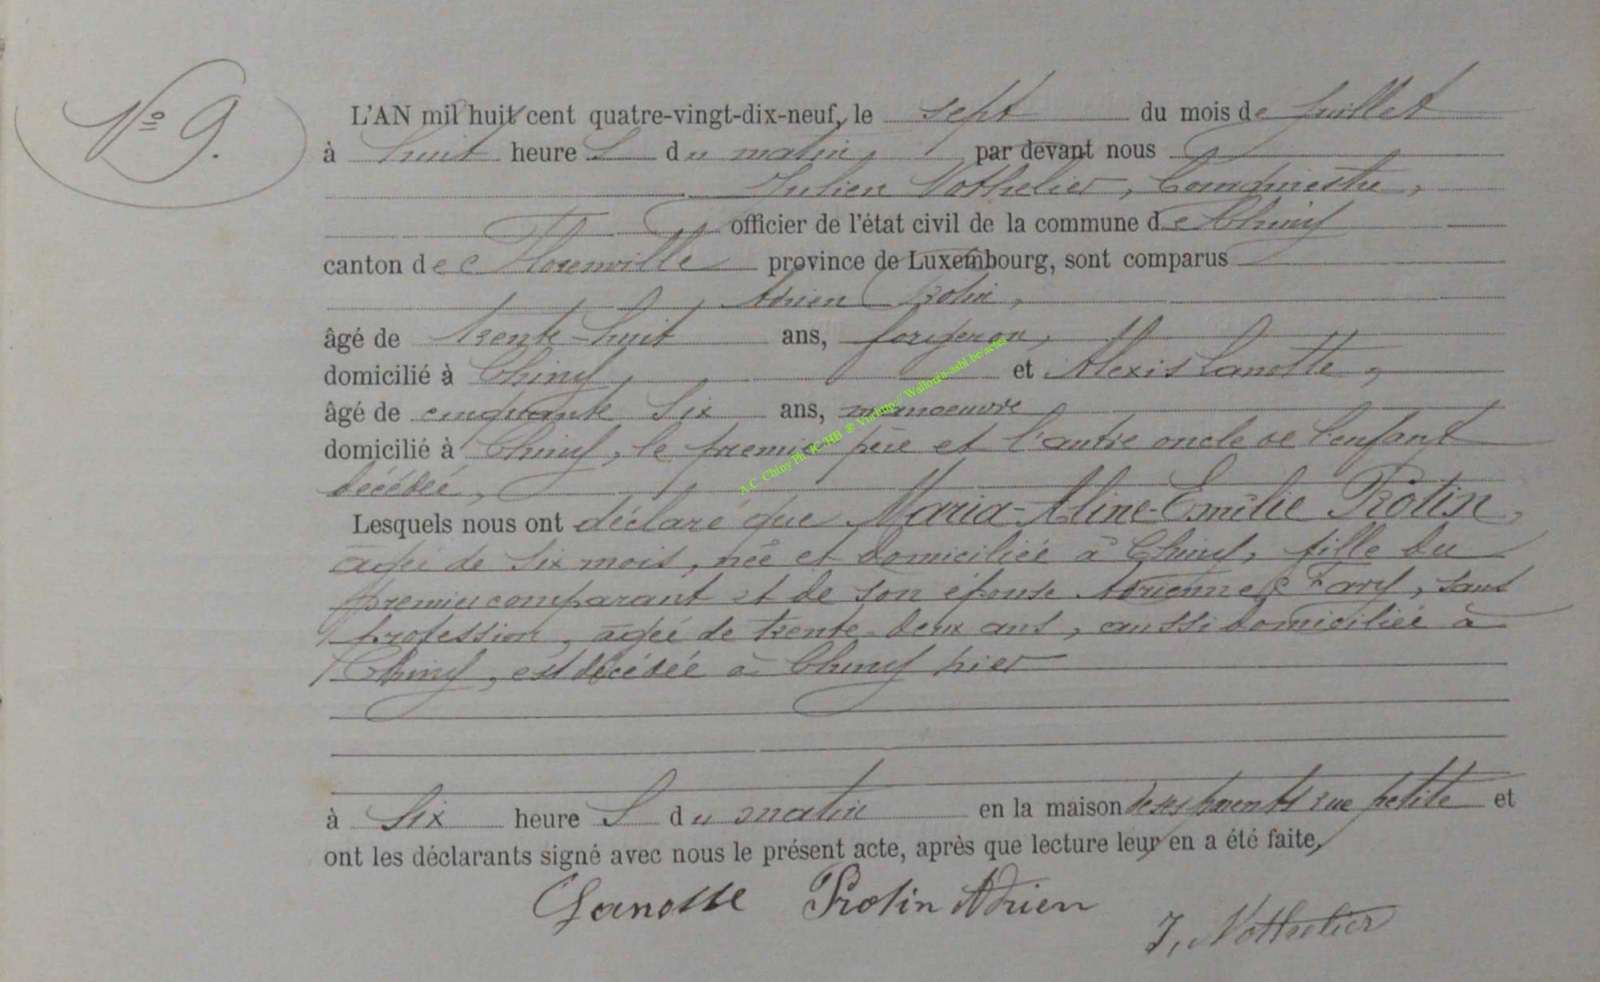 N° 9.
L'AN mil huit cent quatre-vingt-dix-neuf, le sept du mois de Juillet
à huit heure s du matin, par devant nous
Julien Nothelier, Bourgmestre,
officier de l'état civil de la commune de Chiny
canton de Florenville province de Luxembourg, sont comparus
Adrien Protin,
âgé de trente-huit ans, forgeron,
domicilié à Chiny, et Alexis Lanotte,
âgé de cinquante six ans, manoeuvre
domicilié à Chiny, le premier père et l'autre oncle de l'enfant
décédée,
Lesquels nous ont déclaré que Maria-Aline-Emilie Protin,
agée de six mois, née et domiciliée à Chiny, fille du
premier comparant et de son épouse Adrienne, sans
profession, agée de trente-deux ans, aussi domiciliée à
Chiny, est décédée à Chiny hier
à six heure s du matin en la maison de ses parents rue petite et
ont les déclarants signé avec nous le présent acte, après que lecture leur en a été faite,
Lanotte Protin Adrien
J. Nothelier